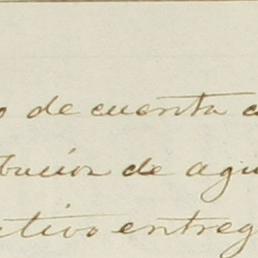 o de cuenta c
bucion de agu
ctivo entreg